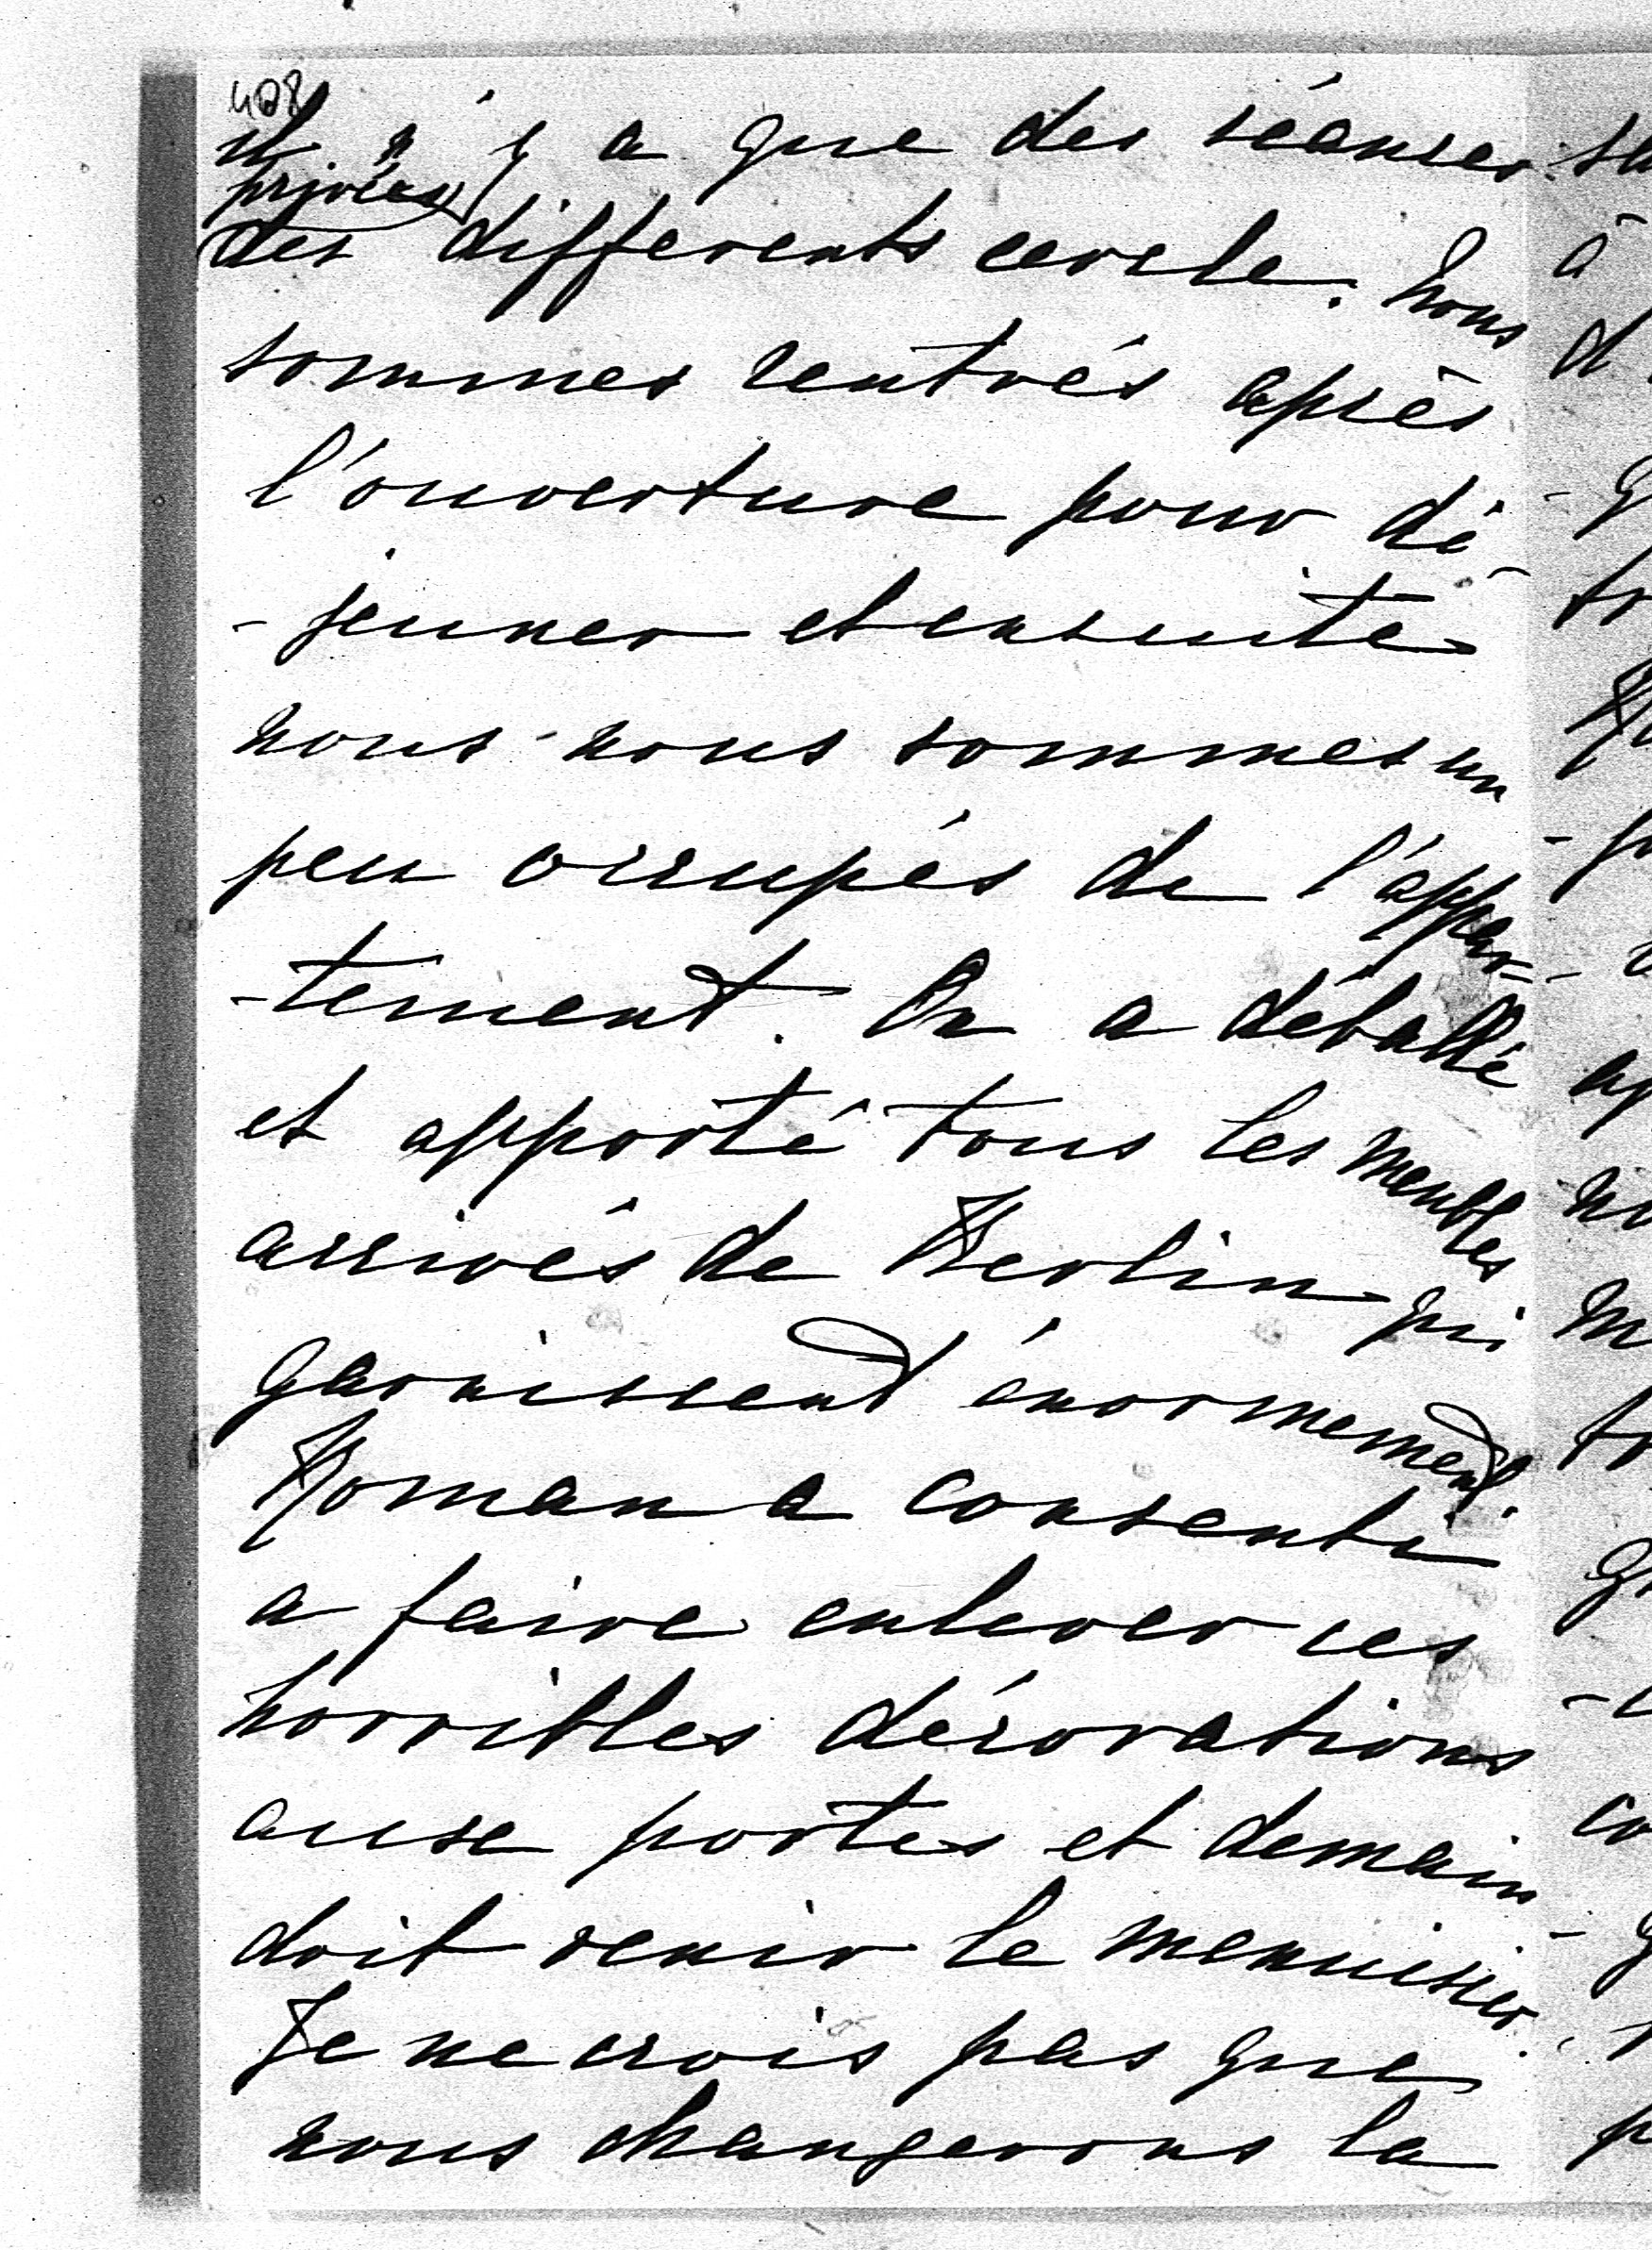 408
il n'y a que des séances
privées
des différents cercle. Nous
sommes rentrés après
l'ouverture pour dé-
-jeuner et ensuite
nous nous sommes un
peu occupés de l'appar-
-tement. On a déballé
et apporté tous les meubles
arrivés de Berlin qui
garnissent énormément.
Roman a consenti
a faire enlever ces
horribles décorations
aux portes et demain
doit venir le menuisier.
Je ne crois pas que
nous changerons la